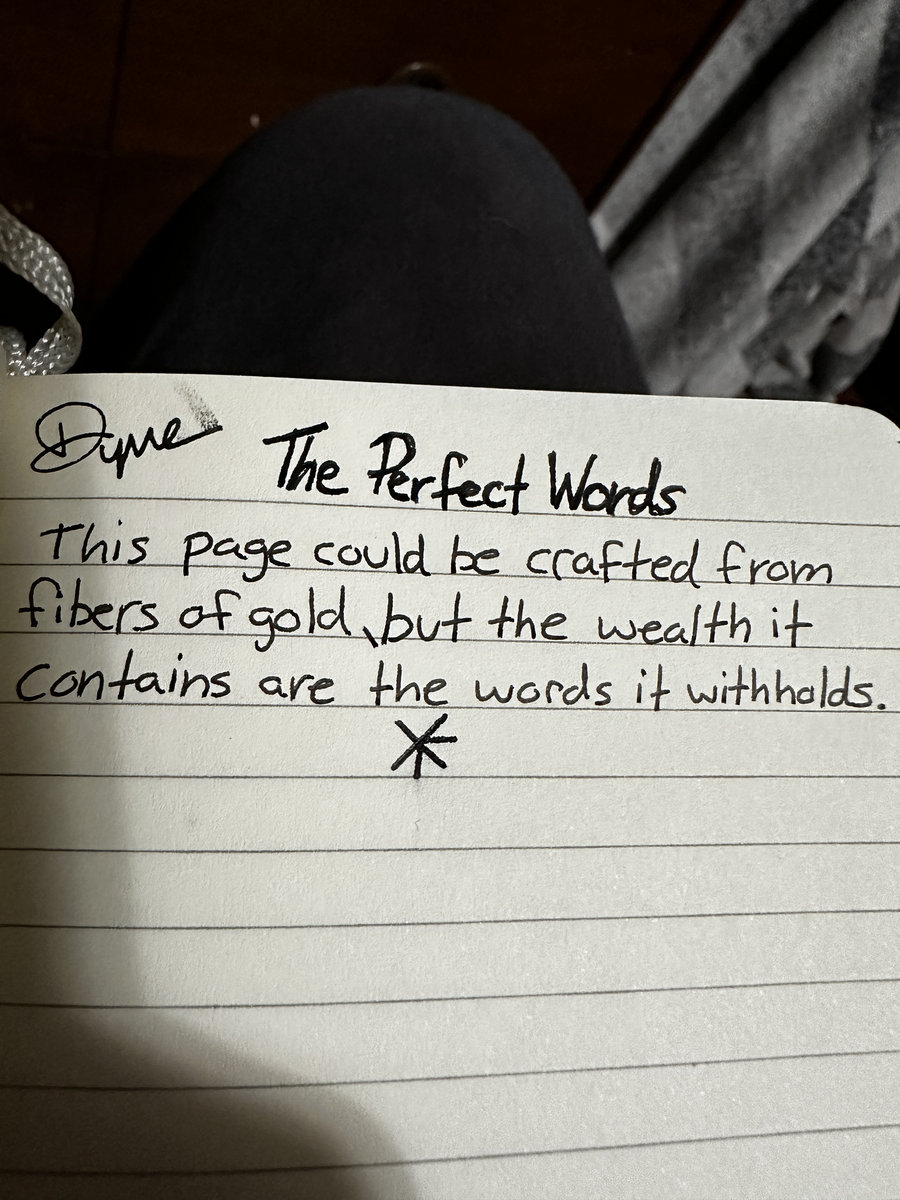 Dyme
The Perfect Words
This page could be crafted from
fibers of gold, but the wealth it
contains are the words it withholds.